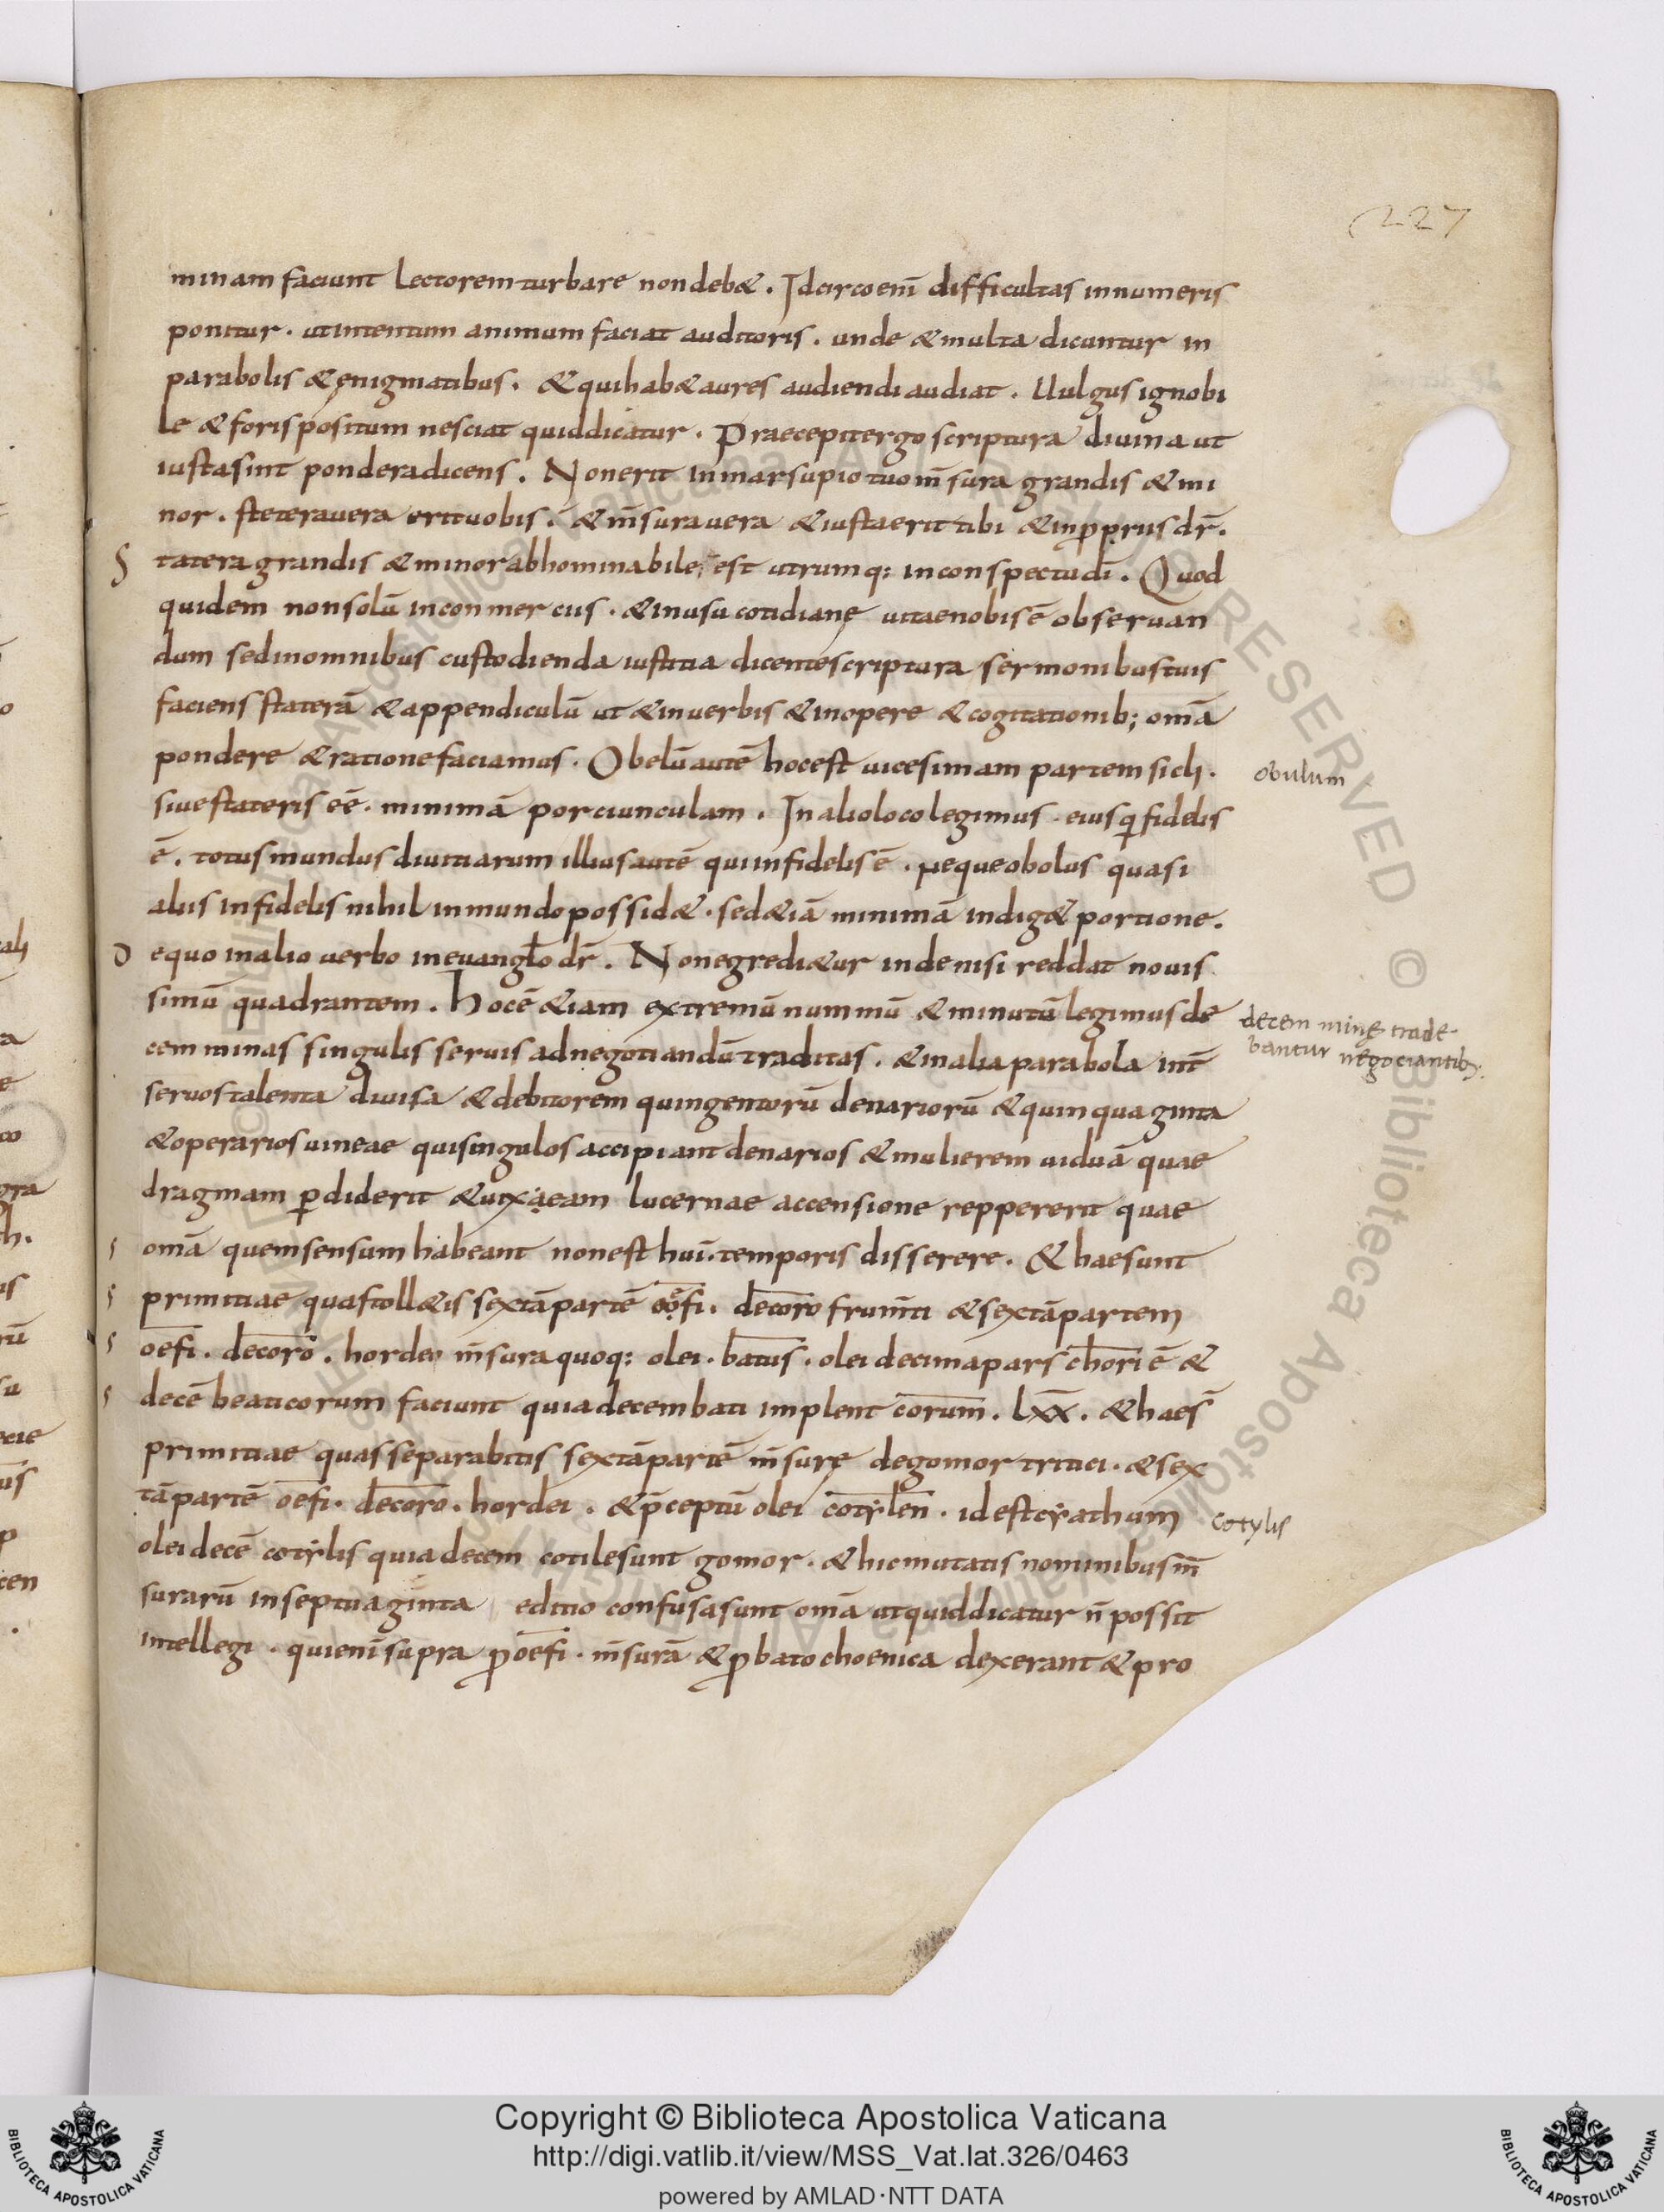 227
minam faciunt lectorem turbare non deb&. Idcirco enī difficultas in numeris
ponitur. ut intentum animum faciat auditoris. unde & multa dicuntur in
parabolis & ęnigmatibus. & qui hab& aures audiendi audiat. Uulgus ignobi
le & foris positum nesciat quid dicatur. Praecepit ergo scriptura diuina ut
iusta sint pondera dicens. Non erit in marsupio tuo m̄sura grandis & mi
nor. stetera uera erit uobis. & m̄sura uera & iusta erit tibi & in ꝓꝑriis dr̄.
S tatera grandis & minor abhominabile est utrumq: in conspectu dī. Quod
quidem non solū in conmerciis. & in usu cotidianę uitae nobis ē obseruan
dum sed in omnibus custodienda iustitia dicente scriptura sermonibus tuis
faciens staterā & appendiculū ut & in uerbis & in opere & cogitationib; om̄a
pondere & ratione faciamus. Obelū autē hoc est uicesimam partem sicli.
obulum
siue stateris eē. minimā porciunculam. In alio loco legimus. eius qͥ fidelis
ē. totus mundus diuitiarum illius autē qui infidelis ē. neque obolus quasi
alus infidelis nihil in mundo possid&. sed &iā minimā indig& portione.
D equo in alio uerbo in euangło dr̄. Non egredi&ur inde nisi reddat nouis
simū quadrantem. hoc ē &iam extremū nummū & minutū legimus de
decem minę trade
bantur negociantib;
cem minas singulis seruis ad negotiandū traditas. & in alia parabola int̄
seruos talenta diuisa & debitorem quingentorū denariorū & quinquaginta
& operarios uineae qui singulos accipiant denarios & mulierem uiduā quae
dragmam ꝑdiderit & uix eam lucernae accensione reppererit quae
om̄a quem sensum habeant non est hui. temporis disserere. & hae sunt
primitiae quas toll&is sextā partē oefi. decoro frum̄ti & sextā partem
oefi. decoro. hordei m̄sura quoq: olei. batus. olei decima pars chori ē &
decē beati corum faciunt quia decem bati implent corum. lxx. & hae s̄
primitiae quas separabitis sextā partē m̄surę degomor tritici. & sex
tā partē oefi. decoro. hordei. & p̄ceptū olei cotylen. id est cyathum
cotylis
olei decē cotylis quia decem cotile sunt gomor. & hic mutatis nominibus m̄
surarū in septuaginta editio confusa sunt om̄a ut quid dicatur n̄ possit
intellegi. qui enī supra ꝓ oefi. m̄surā & ꝓ bato choenica dexerant & pro
Copyright © Biblioteca Apostolica Vaticana
http://digi.vatlib.it/view/MSS_Vat.lat.326/0463
powered by AMLAD·NTT DATA
BIBLIOTECA APOSTOLICA VATICANA
BIBLIOTECA APOSTOLICA VATICANA